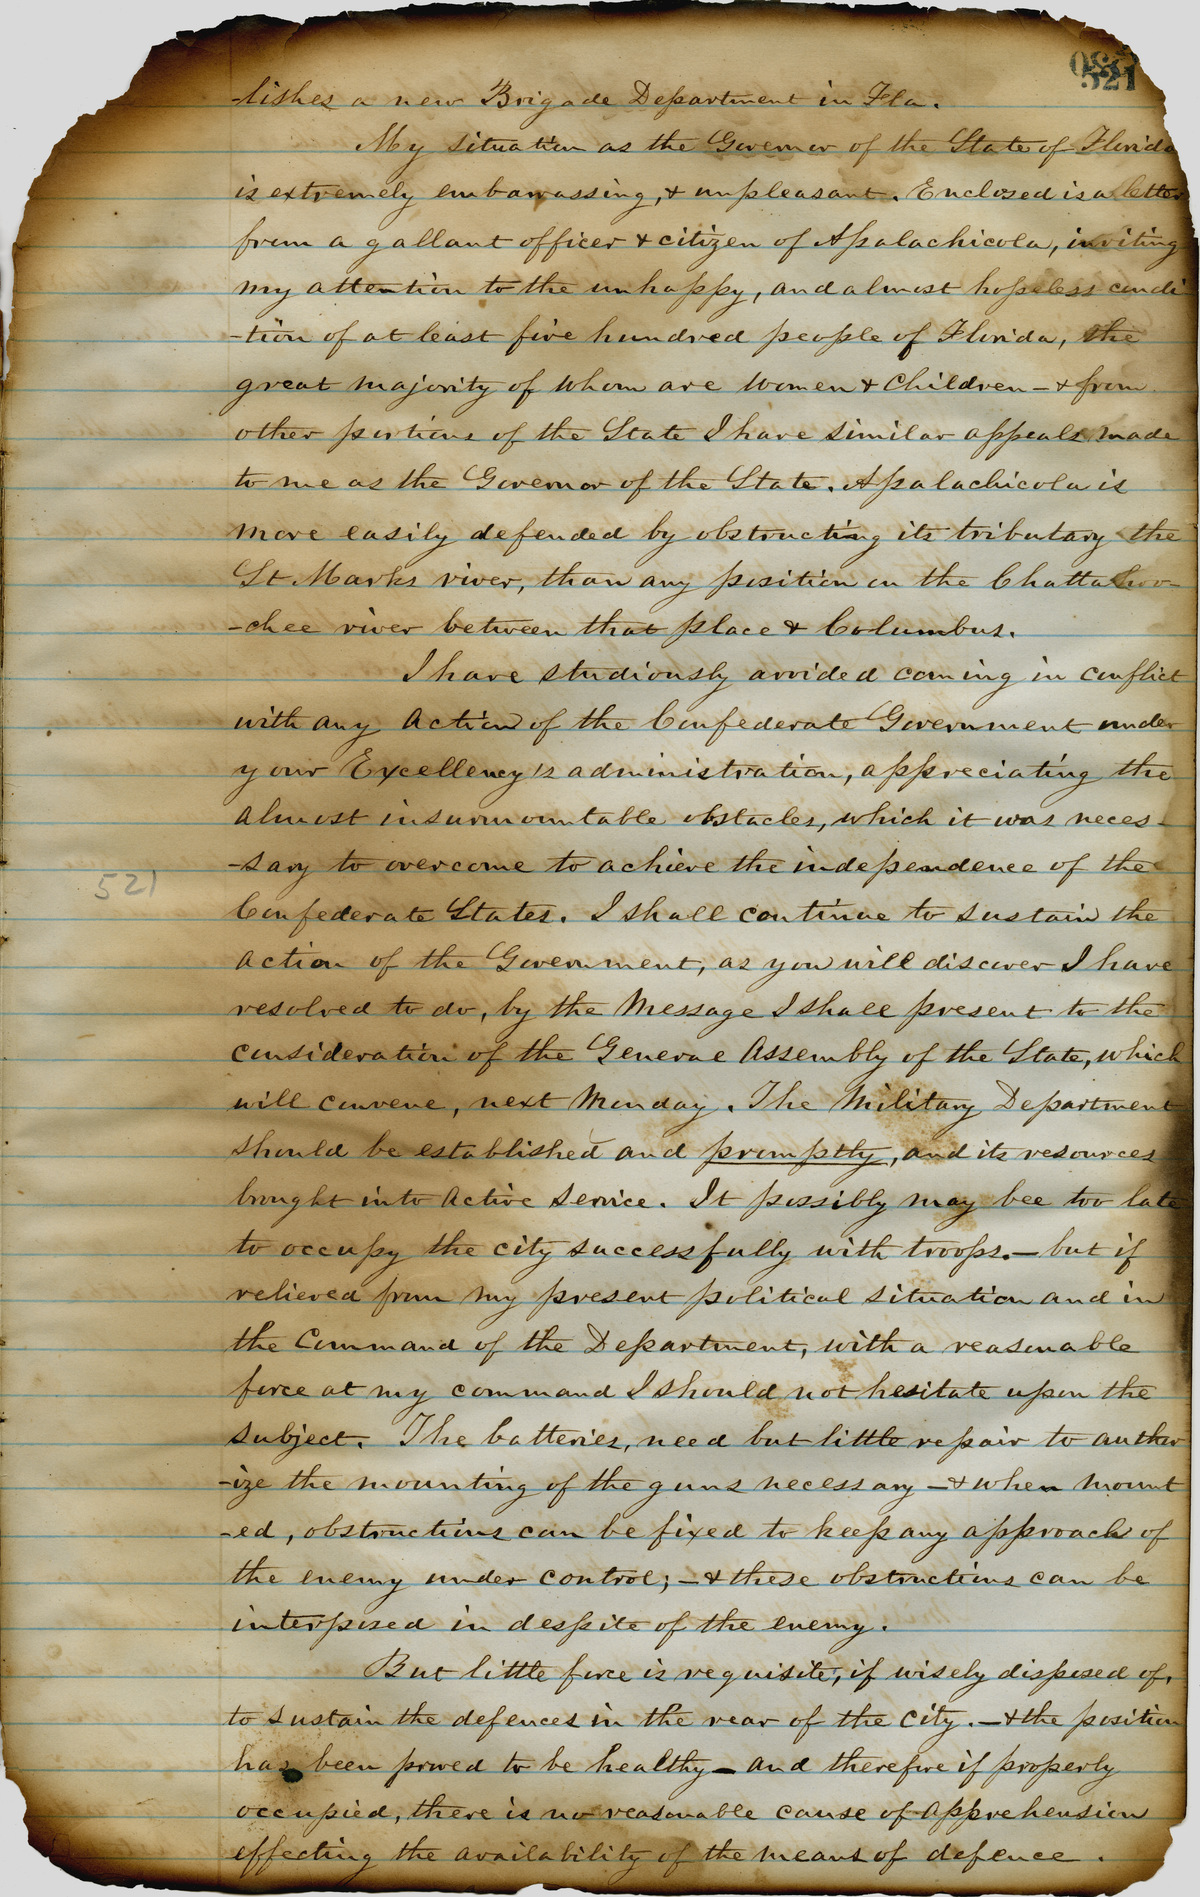 521
-lishes a new Brigade Department in Fla.
My situation as the Governor of the State of Florida
is extremely embarrassing, & unpleasant. Enclosed is a letter
from a gallant officer & citizen of Apalachicola, inviting
my attention to the unhappy, and almost hopeless condi
-tion of at least five hundred people of Florida, the
great majority of whom are women & children - & from
other portions of the State I have similar appeals made
to me as the Governor of the State. Apalachicola is
more easily defended by obstructing its tributary the
St Marks river, than any position on the Chattahoo-
-chee river between that place & Columbus.
I have studiously avoided coming in conflict
with any action of the Confederate Government under
your Excellency's administration, appreciating the
almost insurmountable obstacles, which it was neces-
-sary to overcome to achieve the independence of the
521
Confederate States. I shall continue to sustain the
action of the Government, as you will discover I have
resolved to do, by the Message I shall present to the
consideration of the General Assembly of the State, which
will convene, next Monday. The Military Department
should be established and promptly, and its resources
brought into active service. It possibly may bee too late
to occupy the city successfully with troops. - but if
relieved from my present political situation and in
the Command of the Department, with a reasonable
force at my command I should not hesitate upon the
subject. The batteries, need but little repair to author
-ize the mounting of the guns necessary - & when mount
-ed, obstructions can be fixed to keep any approach of
the enemy under control; - & these obstructions can be
interposed in despite of the enemy.
But little force is requisite, if wisely disposed of,
to sustain the defences in the rear of the city. - & the position
has been proved to be healthy - and therefore if properly
occupied, there is no reasonable cause of apprehension
effecting the availability of the means of defence.